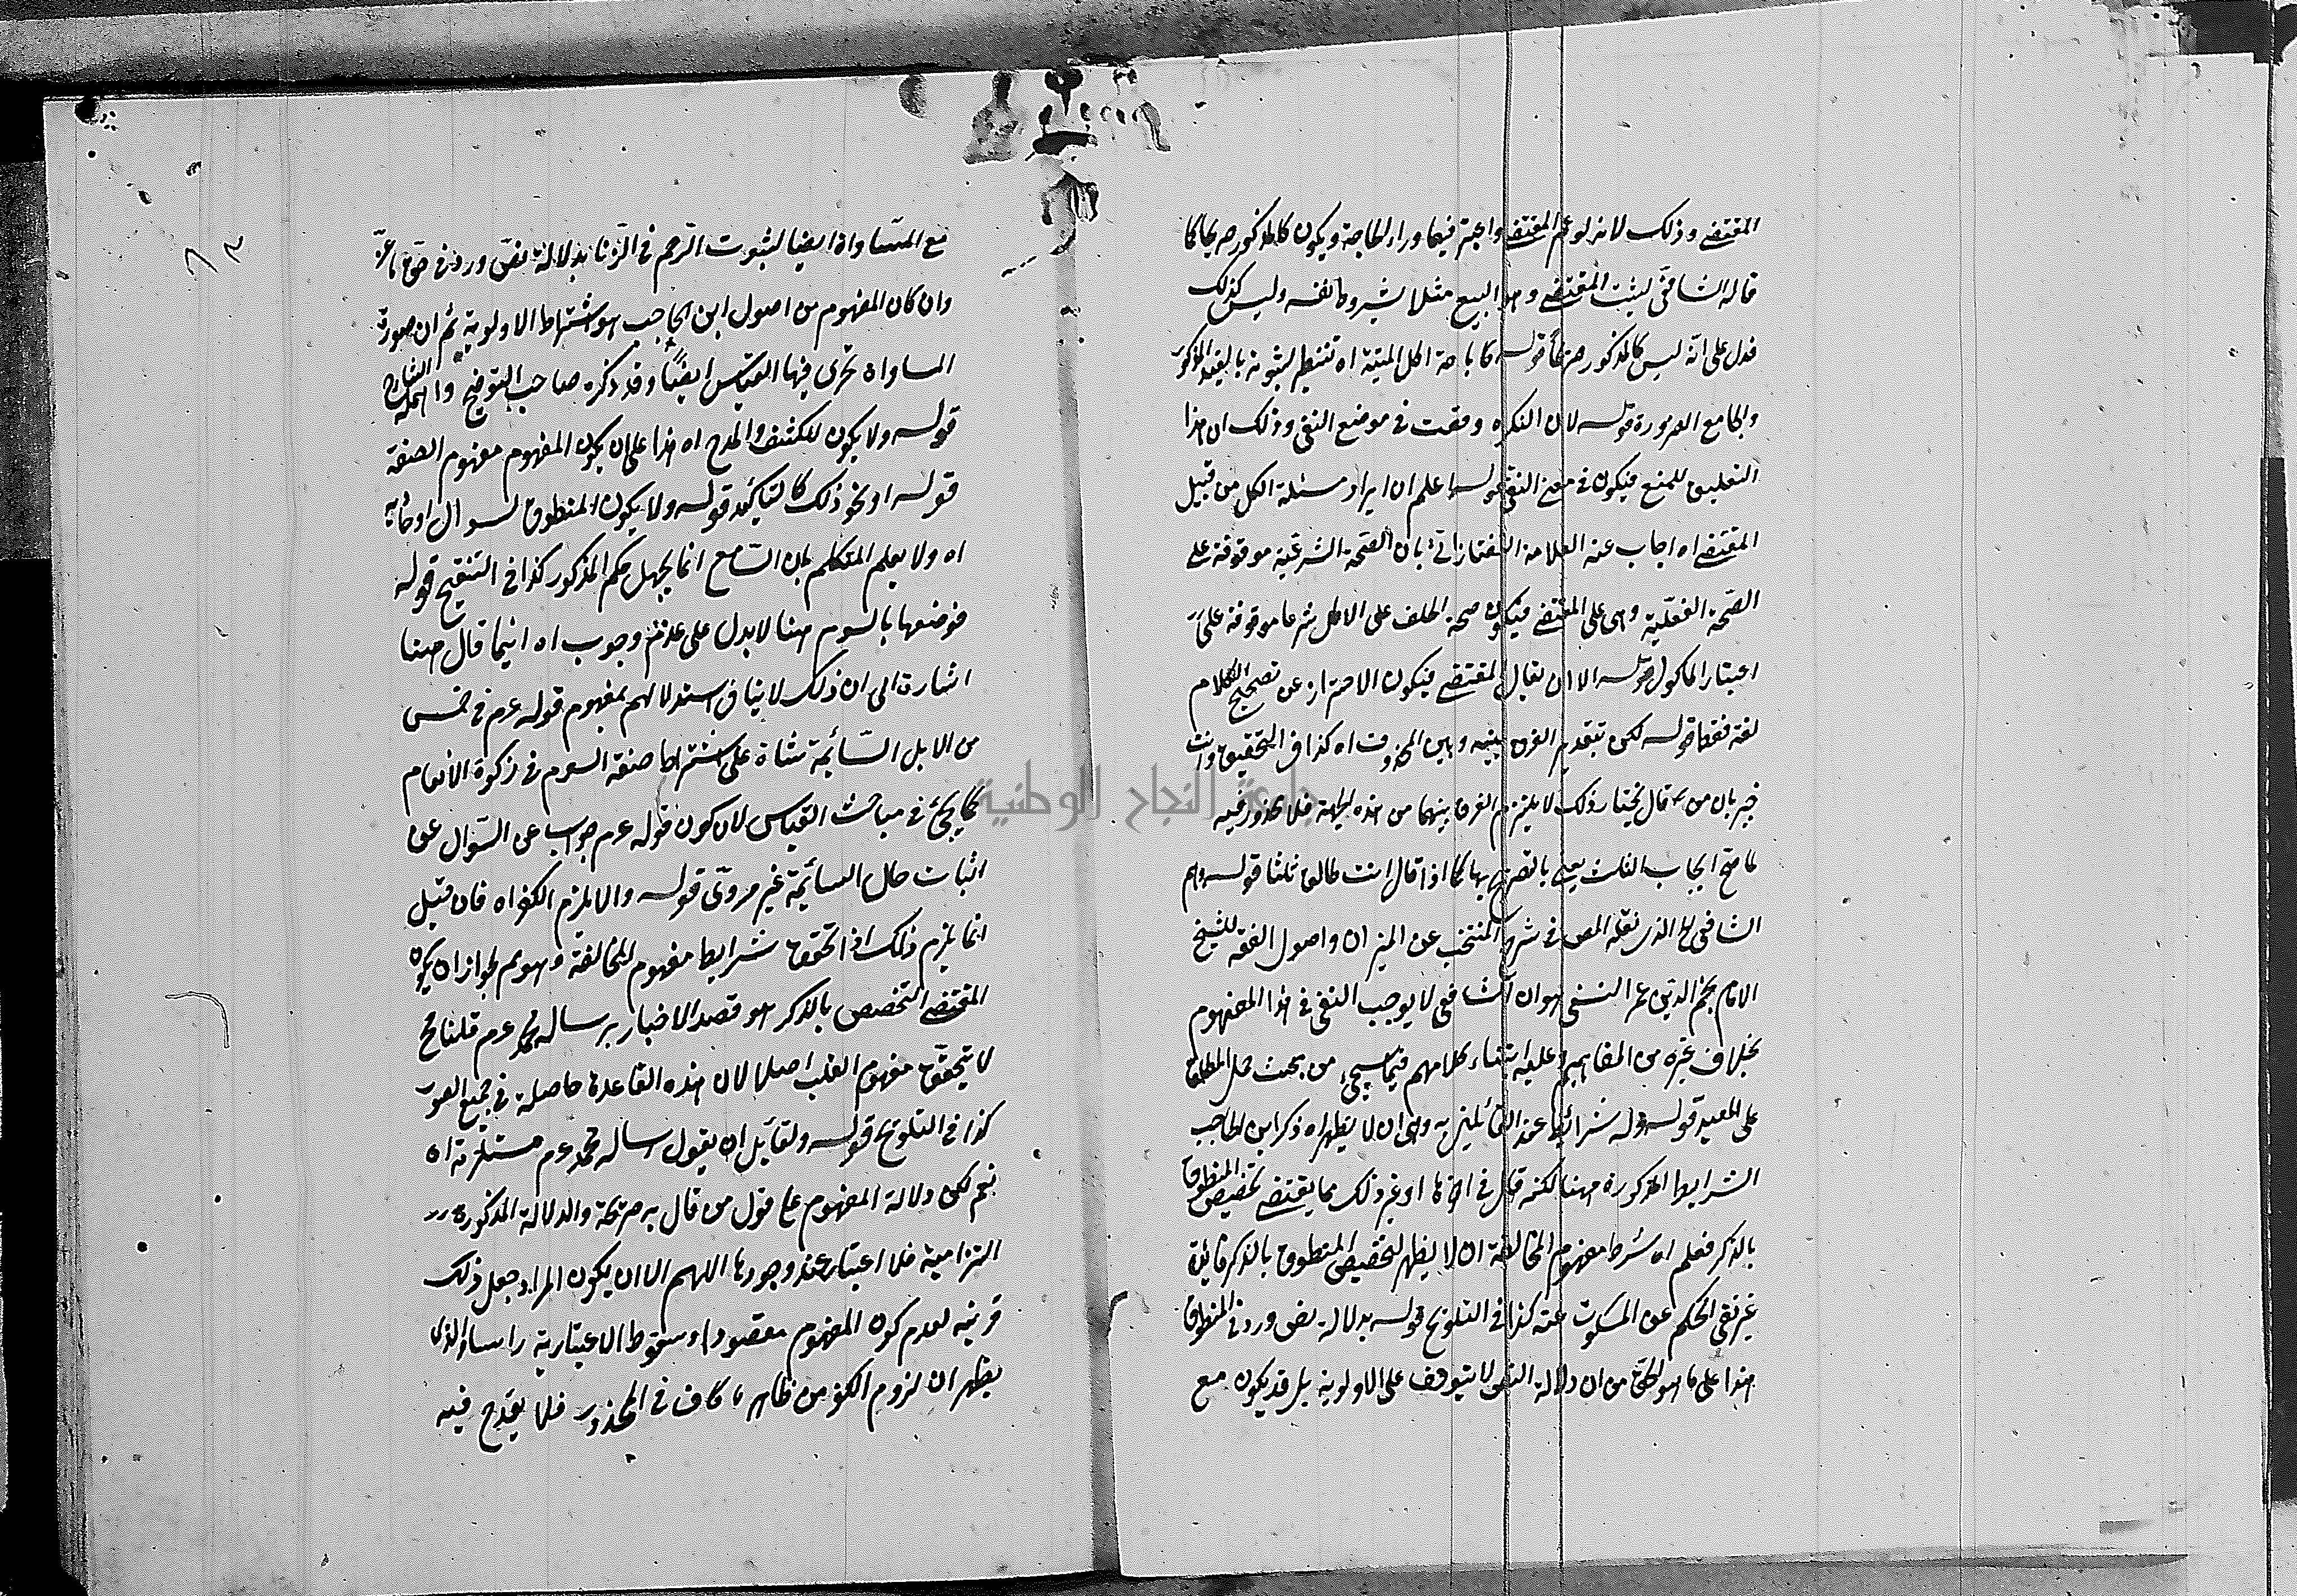 المقتضى وذلك لانه لو عم المقتضى واعتبر فيما وراء الحاجة ويكون كالمذكور صريحا كما
قاله الشافعي ليثبت المقتضى وهو البيع مثلا بشروط نفسه وليس كذلك
فدل على انه ليس كالمذكور حقيقة قوله كاباحة اكل الميتة اه تنظير لثبوته بالقيد المذكور
والجامع الضرورة قوله لان النكرة وقعت في موضع النفي وذلك ان هذا
التعليق للمنع فيكون في معنى النفي قوله اعلم ان ايراد مسئلة الاكل من قبيل
المقتضى اه اجاب عنه العلامة التفتازاني بان الصحة الشرعية موقوفة على
الصحة العقلية وهي على المقتضى فيكون صحة الحلف على الاكل شرعا موقوفة على
اعتبار المأكول قوله الا ان يقال المقتضى فيكون الاحتراز عن تصحيح الكلام
لغة فقط قوله لكن تبقديم الفرق بينه وبين المحذوف اه كذا في التحقيق وانت
خبير بان من قال يختار ذلك لا يلتزم الفرق بينهما من هذه الجهة فلا محذور فيه
ما صح ايجاب الثلث يعني بالتصريح بها كما اذا قال انت طالق ثلثا قوله وهم
الشافعي الذي نقله المص في شرح المنتخب عن الميزان واصول الفقه للشيخ
الامام نجم الدين عمر النسفي هو ان الشافعي لا يوجب النفي في هذا المفهوم
بخلاف غيره من المفاهيم وعليه ابتناء كلامهم فيما سيجيء من بحث حمل المطلق
على المقيد قوله وله شرائط عند القائلين به وهي ان لا يظهر اه ذكر ابن الحاجب
الشرايط المذكورة ههنا لكنه قال في اخرها او غير ذلك مما يقتضى تخصيص المنطوق
بالذكر فعلم ان شرط مفهوم المخالفة ان لا يظهر لتخصيص المنطوق بالذكر فائدة
غير نفي الحكم عن المسكوت عنه كذا في التلويح قوله بدلالة نص ورد في المنطوق
هذا على ما هو الحق من ان دلالة النص لا يتوقف على الاولوية بل قد يكون مع
مع المساواة ايضا لثبوت الرجم في الزنا بدلالة نص ورد في حق ماعز
وان كان المفهوم من اصول ابن الحاجب هو اشتراط الاولوية ثم ان صورة
المساواة تجرى فيها القياس ايضا وقد ذكره صاحب التوضيح واهمله الشارح
قوله ولا يكون للكشف والمدح اه هذا على ان يكون المفهوم مفهوم الصفة
قوله او نحو ذلك كالتأكيد قوله ولا يكون المنطوق لسوال او حادثة
اه ولا يعلم المتكلم بان السامع انما يجهل حكم المذكور كذا في التنقيح قوله
فوضعها بالسوم ههنا لا يدل على عدم وجوب اه انما قال ههنا
اشارة الى ان ذلك لا ينافي استدلالهم بمفهوم قوله عم في خمس
من الابل السائمة شاة على اشتراط صفة السوم في زكوة الانعام
كما يجئ في مباحث القياس لان كون قوله عم جواب عن السؤال عن
اثبات حال السائمة غير مروى قوله والا يلزم الكفر اه فان قيل
انما يلزم ذلك اذا تحقق شرايط مفهوم المخالفة وهو مم لجواز ان يكون
المقتضى لتخصيص بالذكر هو قصد الاخبار برسالة محمد عم قلنا فح
لا يتحقق مفهوم اللقب اصلا لان هذه القاعدة حاصلة في جميع الصور
كذا في التلويح قوله ولقائل ان يقول رسالة محمد عم مستلزمة اه
نعم لكن دلالة المفهوم على قول من قال به صريحة والدلالة المذكورة
التزامية فلا اعتبار عند وجودها اللهم الا ان يكون المراد جعل ذلك
قرينة لعدم كون المفهوم مقصودا وسقوط الاعتبار به راسا والذي
يظهر ان لزوم الكفر من ظاهره كاف في المحذور فلا يقدح فيه
جامعة النجاح الوطنية